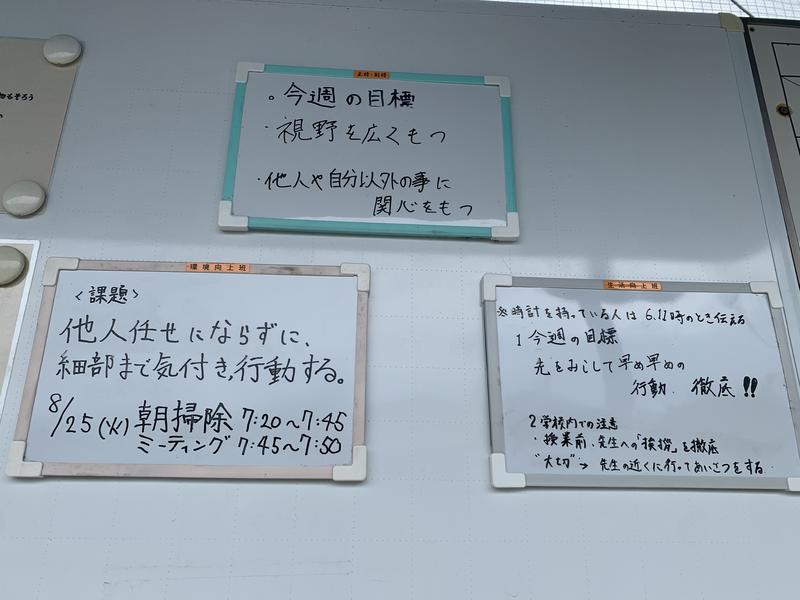 物もそろう
主将・副将
。今週の目標
・視野を広くもつ
・他人や自分以外の事に
関心をもつ
環境向上班
<課題>
他人任せにならずに、
細部まで気付き、行動する。
8/25(火) 朝掃除 7:20〜7:45
ミーティング 7:45〜7:50
生活向上班
※時計を持っている人は 6.11時のとき伝える
1 今週の目標
先をみこして早め早めの
行動、徹底!!
2 学校内での注意
・授業前、先生への「挨拶」を徹底
"大切"→ 先生の近くに行ってあいさつをする.